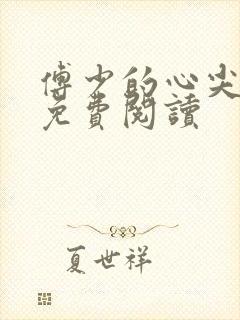 傅少的心尖
免費閱讀
夏世祥